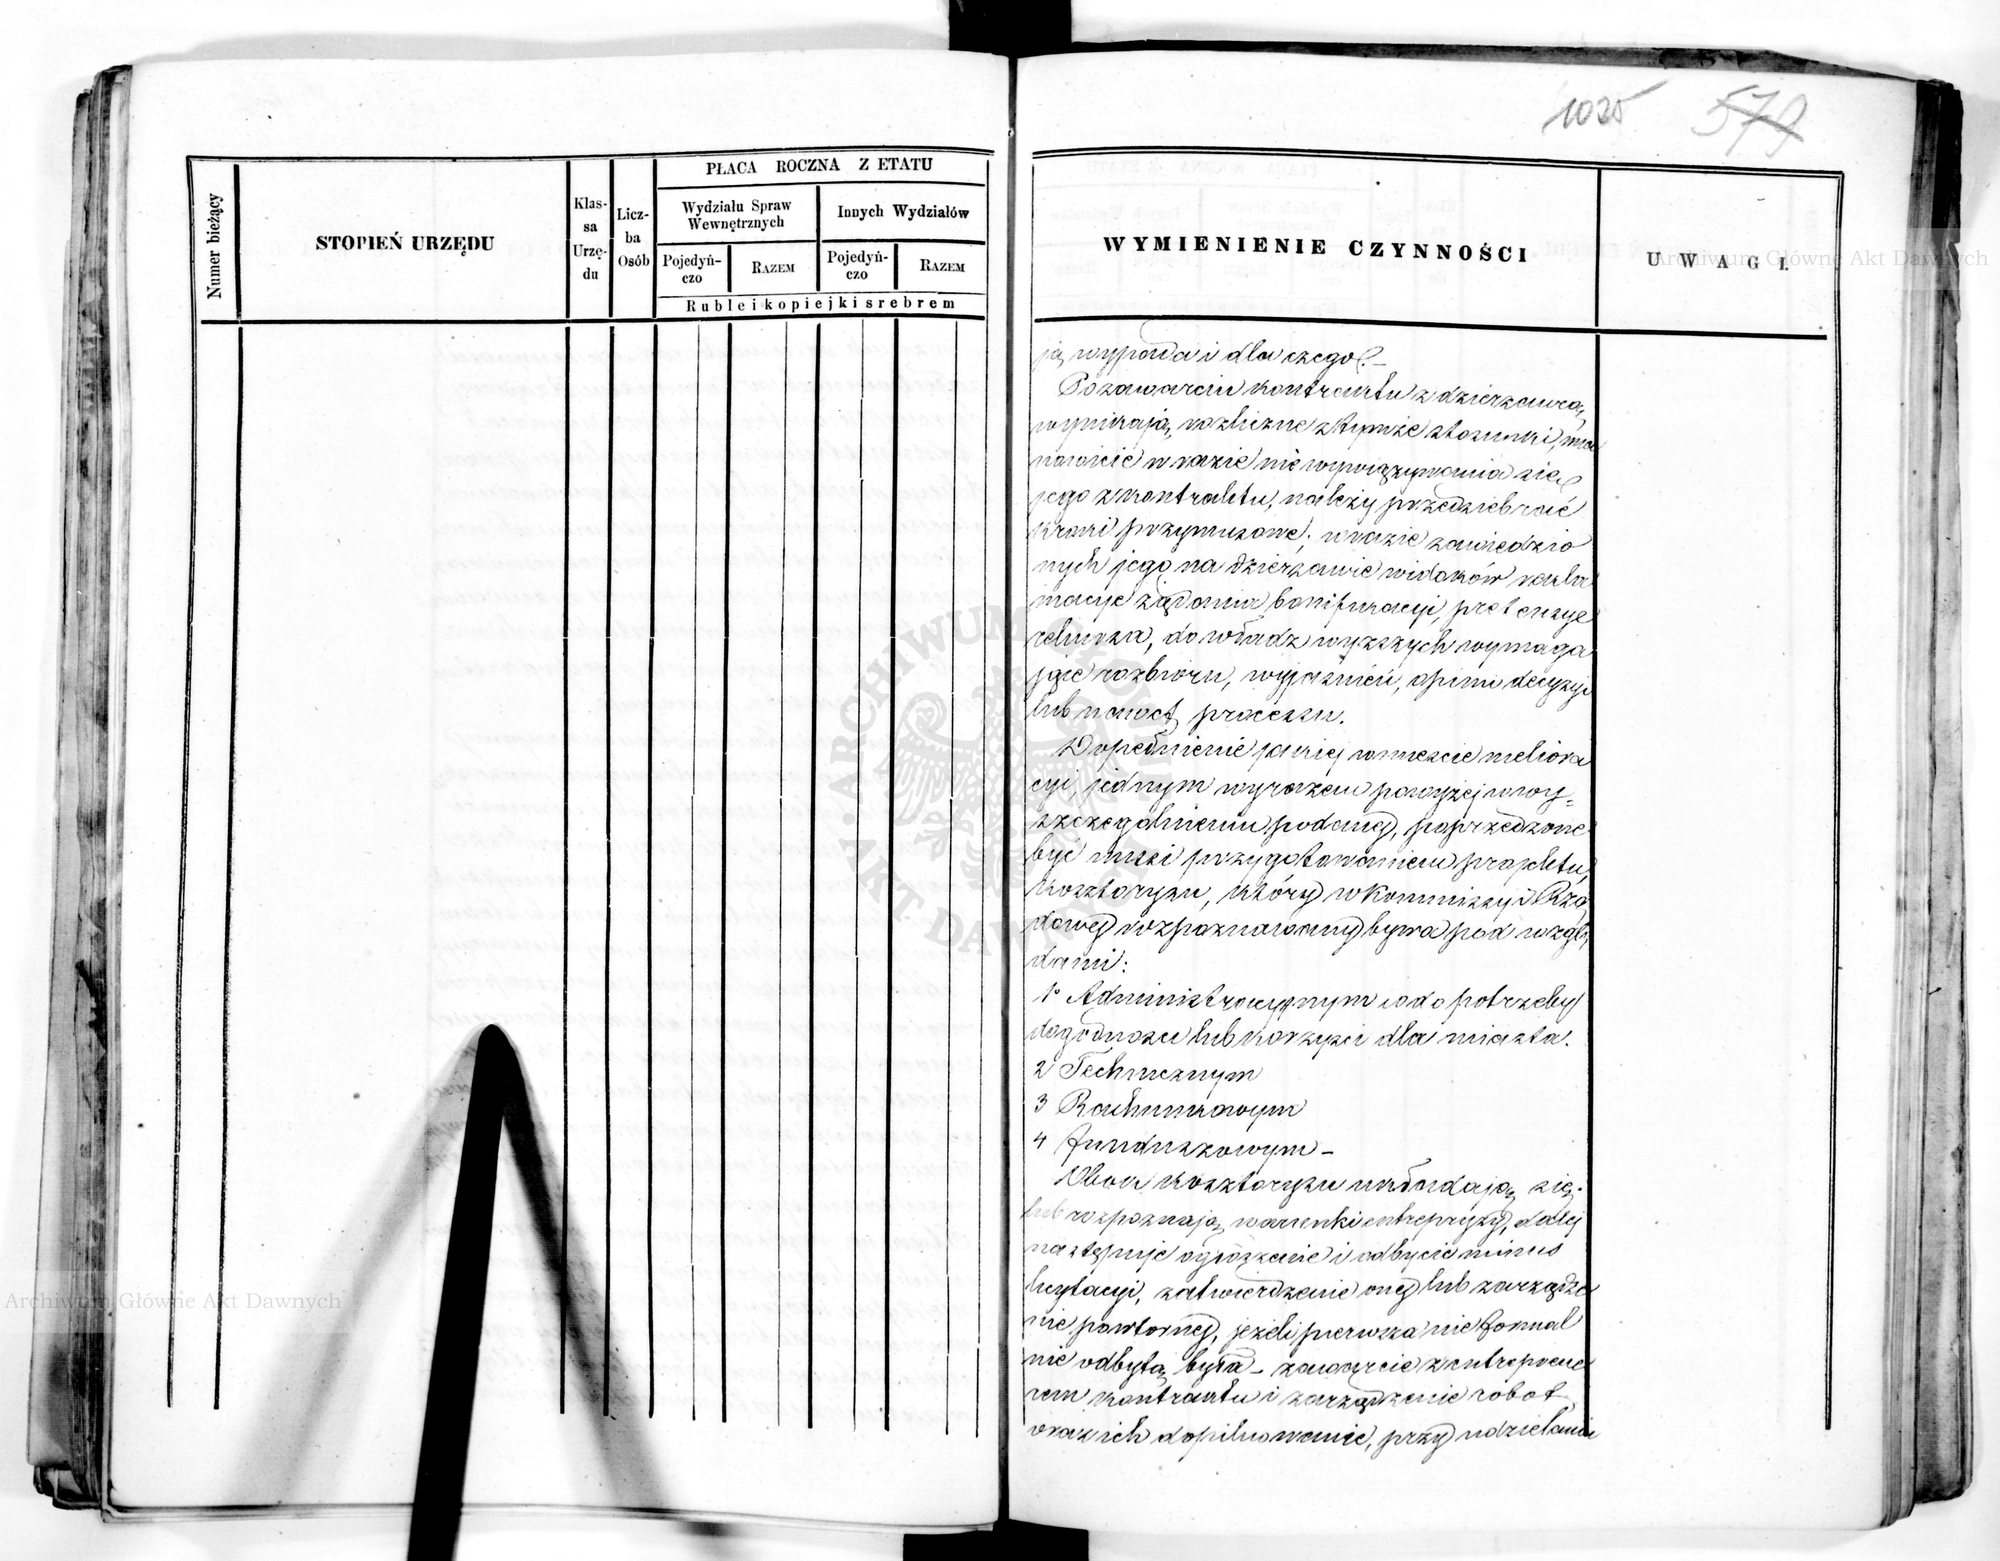 1025 579
Numer bieżący
STOPIEŃ URZĘDU
Klas-
sa
Urzę-
du
Licz-
ba
Osób
PŁACA ROCZNA Z ETATU
Wydziału Spraw
Wewnętrznych
Innych Wydziałów
Pojedyń-
czo
RAZEM
Pojedyń-
czo
RAZEM
Rublei kopiejki srebrem
WYMIENIENIE CZYNNOŚCI
UWAGI.
ją wypada i dla czego?.–
Po zawarciu kontraktu z dzierżawcą,
wynikają, rozliczne z tymże stosunki, mia
nowicie w razie nie wywiązywania się
jego z kontraktu, należy przedsiebrać
kroki przymusowe; w razie zawiedzio
nych jego na dzierżawie widoków rekla
macye żądania bonifikacyi, pretensye
rekursa, do władz wyższych wymaga
jące rozbioru, wyjaśnień, opinii decyzyi
lub nawet processu.
Dopełnienie jakiej w mieście meliora
cyi, jednym wyrazem powyżej w wy=
szczególnieniu podanej, poprzedzone
być musi przygotowaniem projektu,
kosztorysu, który w Kommissyi Rzą
dowej rozpoznawany bywa pod wzglę
dami:
1º Administracyjnym co do potrzeby
dogodności lub korzyści dla miasta.
2 Technicznym
3 Rachunkowym
4 funduszowym –
Obok kosztorysu układają się
lub rozpoznają warunki entrepryzy, dalej
następuje ogłoszenie i odbycie minus
licytacyi, zatwierdzenie onej lub zarządze
nie powtornej, jeżeli pierwsza nie formal
nie odbytą była – zawarcie z entreprene
rem kontraktu i zarządzenie robot
oraz ich dopilnowanie, przy udzielaniu
Archiwum Główne Akt Dawnych
Archiwum Główne Akt Dawnych